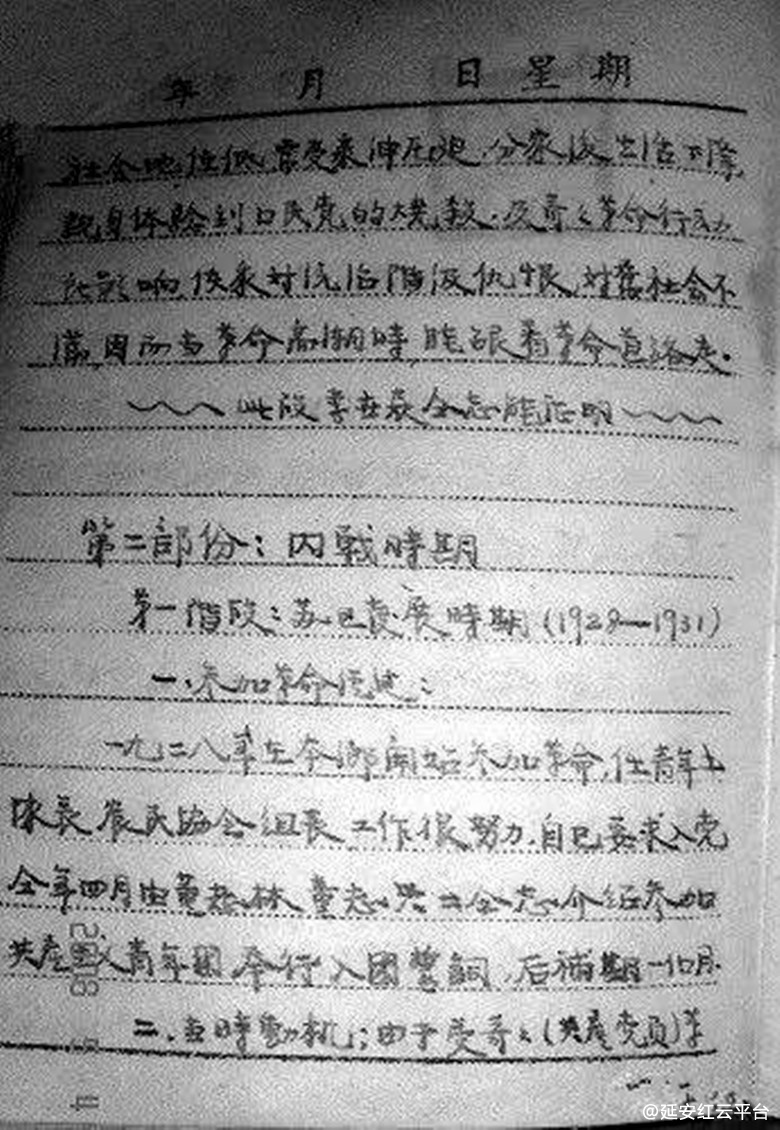 年 月 日 星 期
社会地位低,常受豪绅压迫.分家后生活下降,
亲身体验到口民党的大烧杀.及哥々革命行动
影响,使我对统治阶级仇恨,对旧社会不
满,因而当革命高潮时,能跟着革命道路走.
此段李在众仝志能证明
第二部份:内戰時期
第一階段:苏巴发展時期(1928—1931)
一、参加革命经过:
一九二八年在本乡開始参加革命,任青年
隊長,農民協会组長,工作很努力.自己要求入党
仝年四月由 林、董志 二仝志介绍参加
共产主义青年团,举行入團誓詞,后補期一個月.
二、当時動机;由于受哥々(共産党员)革
2008
@延安红云平台